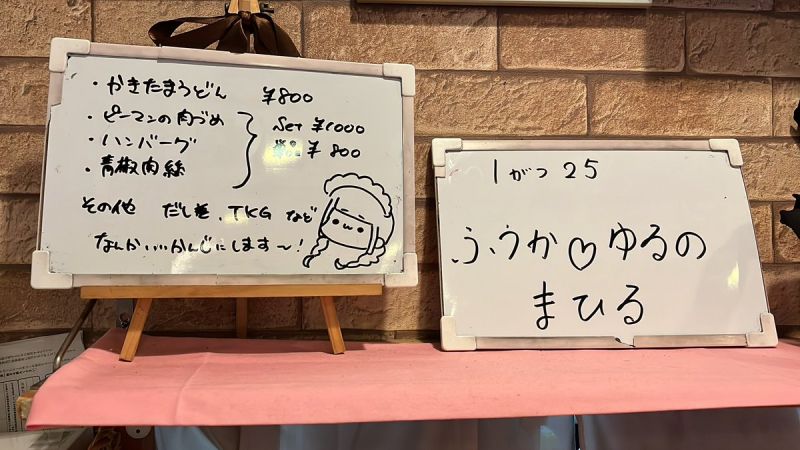 ・かきたまうどん ¥800
・ピーマンの肉づめ
・ハンバーグ
・青椒肉絲
Set ¥1000
単品 ¥800
その他 だし巻、TKG など
なんかいいかんじにします〜!
1がつ 25
ふうか♡ゆるの
まひる